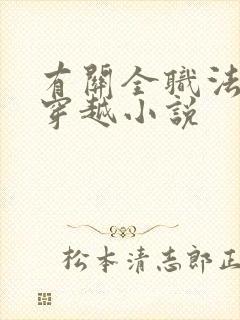 有關全職法
穿越小說
松本清志郎正